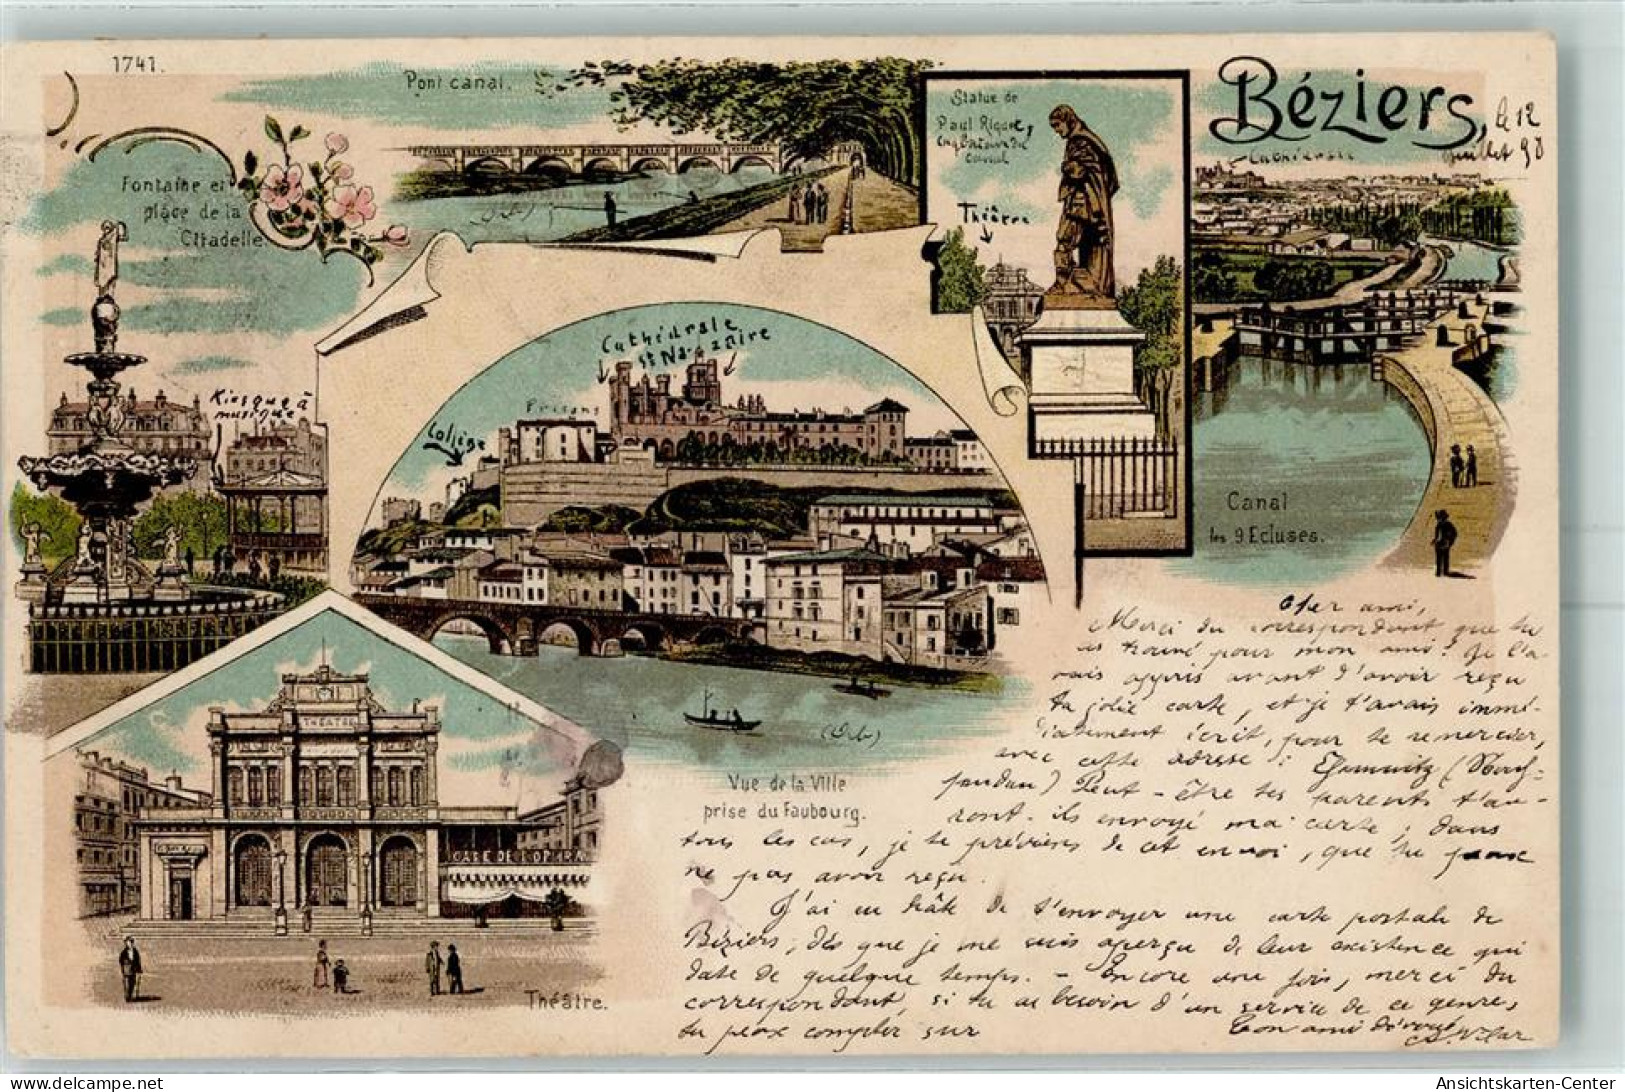 1741.
Pont canal.
Béziers,
le 12
juillet 98
Statue de
Paul Riquet,
du
canal
Cathédrale
Théâtre
Fontaine et
place de la
Citadelle.
(Orb)
Kiosque à
musique
Cathédrale
St Nazaire
Prisons
Collège
Canal
les 9 Ecluses.
(Orb)
Vue de la Ville
prise du Faubourg.
THÉATRE
CAFE DE L'OPERA
Théâtre.
Cher ami,
Merci du correspondant que tu
as trouvé pour mon ami! Je l'a-
vais appris avant d'avoir reçu
ta jolie carte, et je t'avais immé-
diatement écrit, pour te remercier,
avec cette adresse :
Peut-être tes parents t'au-
ront-ils envoyé ma carte; dans
tous les cas, je te préviens de cet envoi, que tu peux
ne pas avoir reçu.
J'ai eu hâte de t'envoyer une carte postale de
Béziers, dès que je me suis aperçu de leur existence qui
date de quelque temps. - Encore une fois, merci du
correspondant, si tu as besoin d'un service de ce genre,
tu peux compter sur
Ton ami dévoué
Vilar
Ansichtskarten-Center